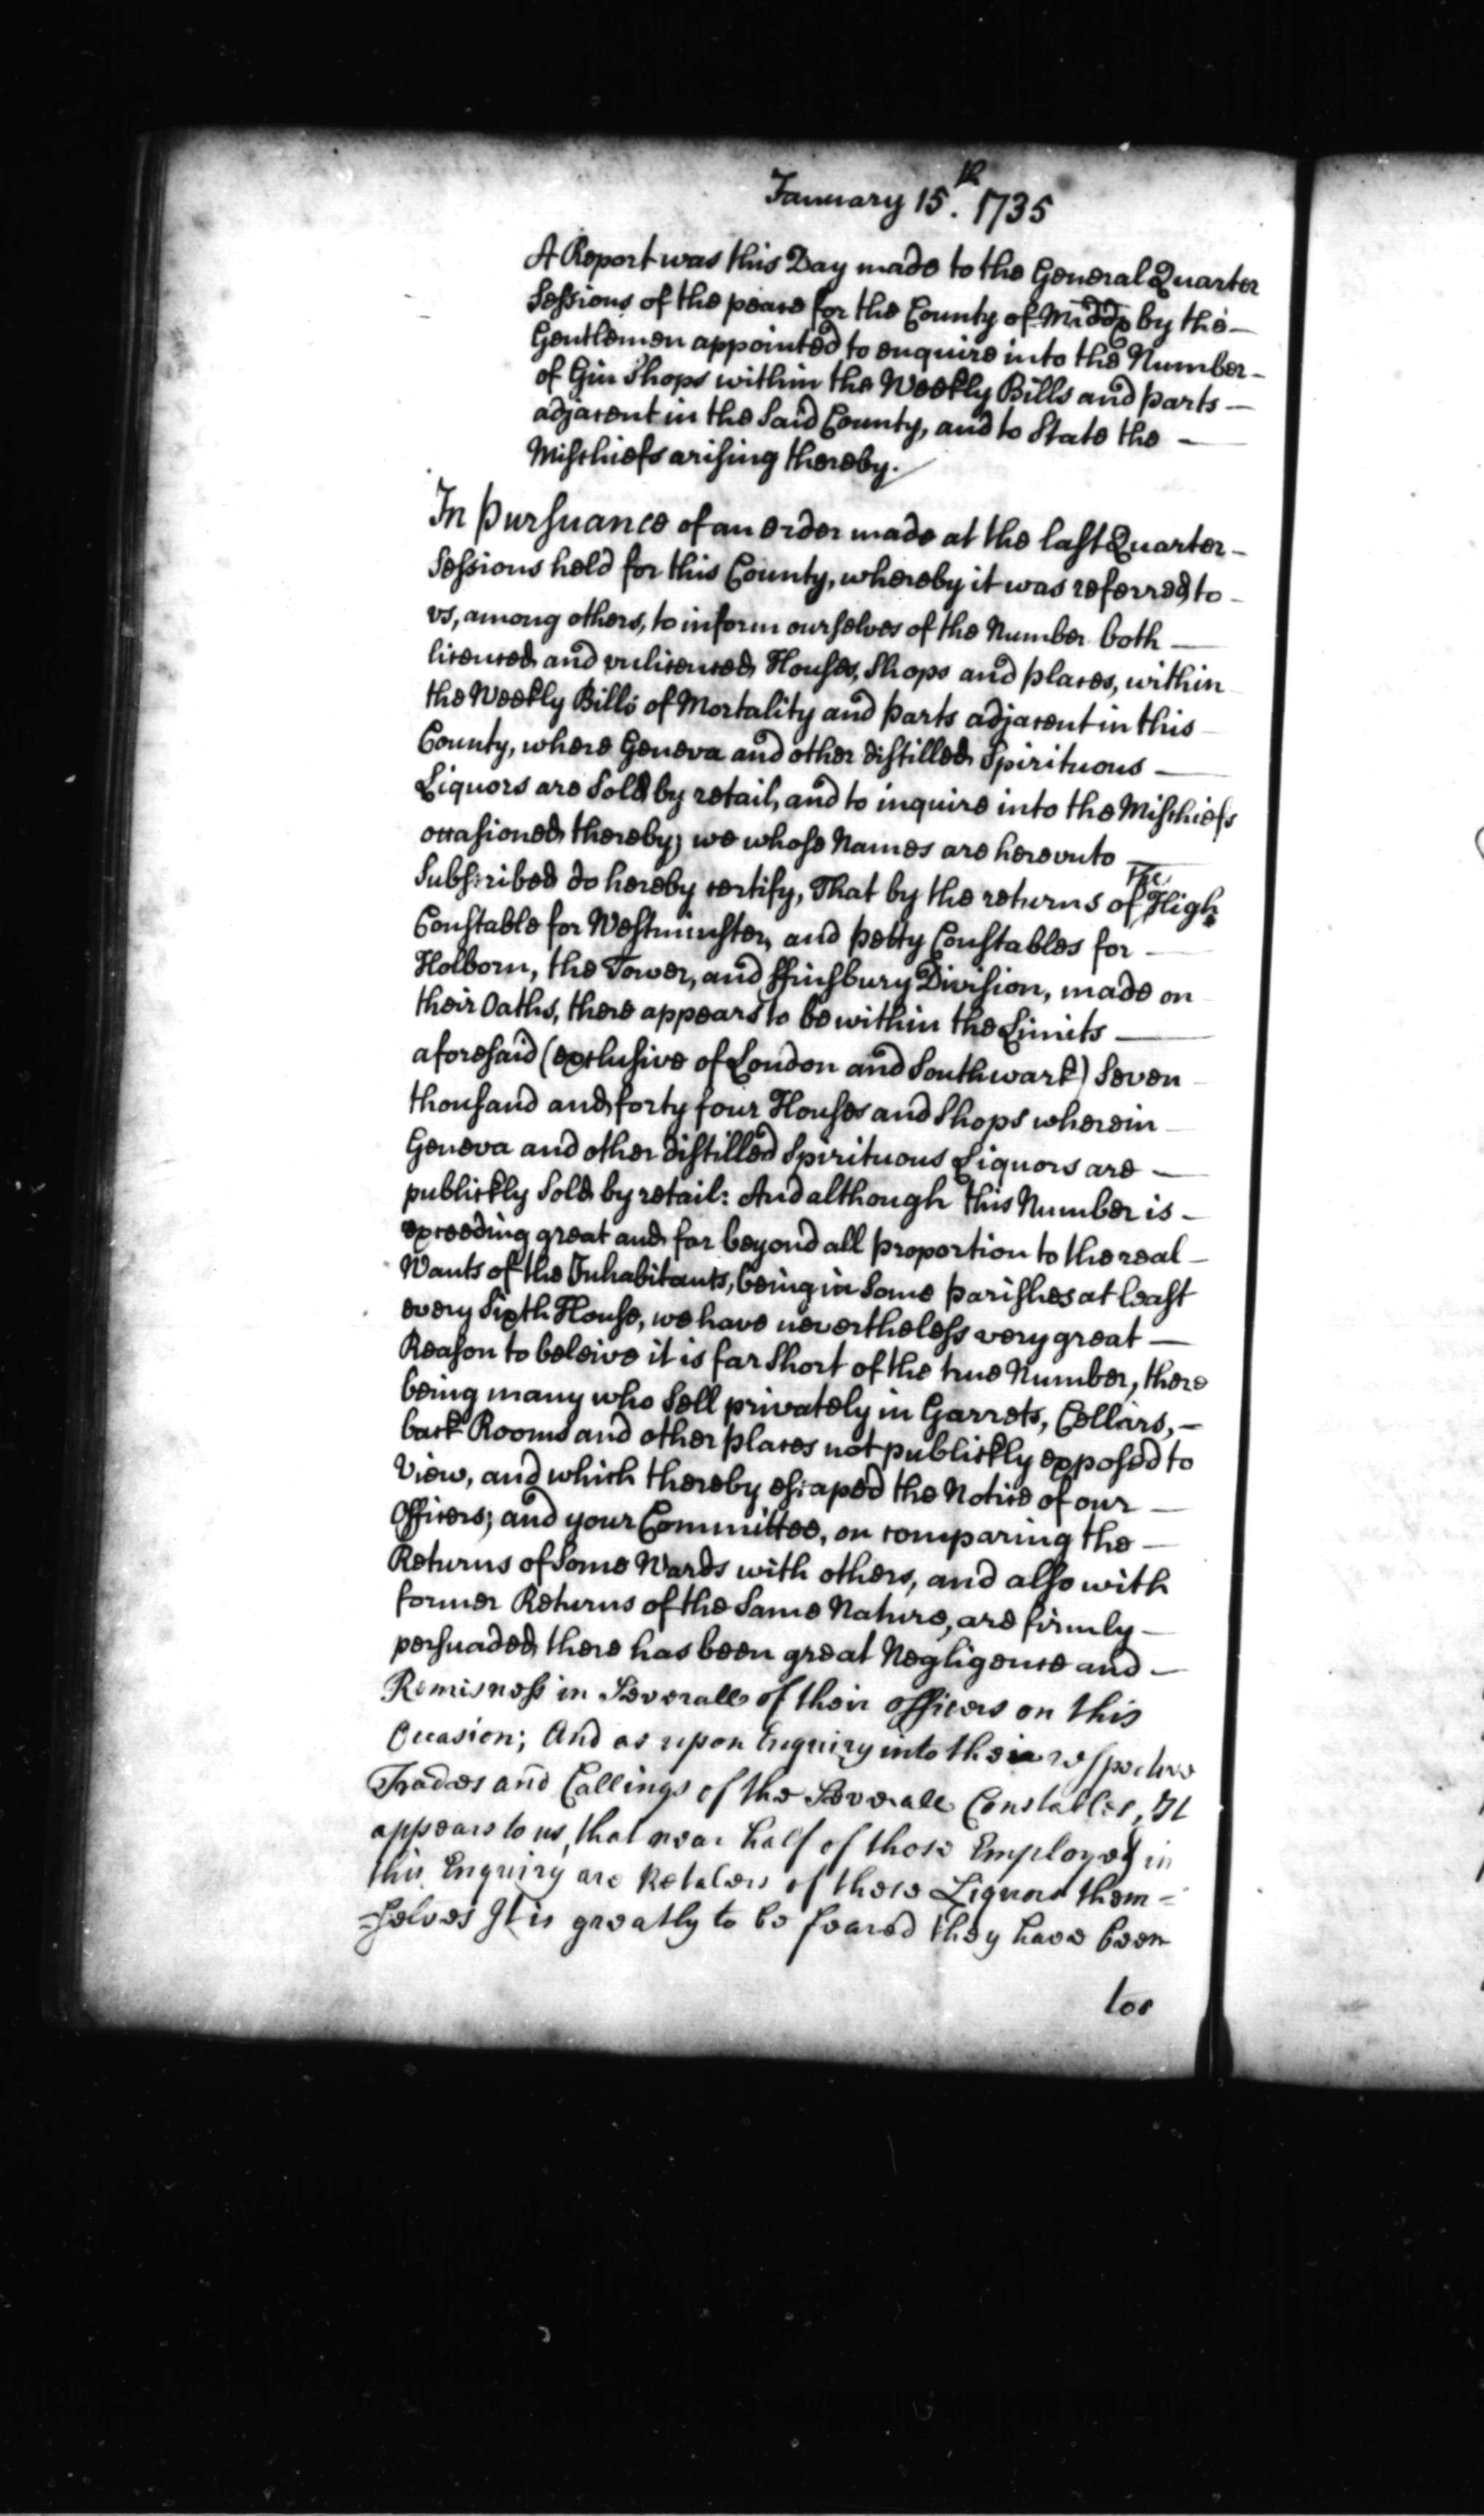 January 15th. 1735
A Report was this Day made to the General Quarter
Sessions of the peace for the County of Middx by the
Gentlemen appointed to enquire into the Number
of Gin Shops within the Weekly Bills and parts
adjacent in the Said County, and to State the
Mischiefs arising thereby.
In Pursuance of an order made at the last Quarter
Sessions held for this County, whereby it was referred to
vs, among others, to inform ourselves of the Number both
licenced and vnlicenced Houses, Shops and places, within
the Weekly Bills of Mortality and parts adjacent in this
County, where Geneva and other distilled Spirituous
Liquors are Sold by retail, and to inquire into the Mischiefs
occasioned thereby; we whose Names are herevnto
Subscribed do hereby certify, That by the returns of the High
Constable for Westminster, and petty Constables for
Holborn, the Tower, and ffinsbury Division, made on
their Oaths, there appears to be within the Limits
aforesaid (exclusive of London and Southwark) Seven
thousand and forty four Houses and Shops wherein
Geneva and other distilled Spirituous Liquors are
publickly Sold by retail: And although this Number is
exceeding great and far beyond all proportion to the real
Wants of the Inhabitants, being in Some parishes at least
every Sixth House, we have nevertheless very great
Reason to beleive it is far Short of the true Number, there
being many who Sell privately in Garrets, Cellars,
back Rooms and other places not publickly exposed to
View, and which thereby escaped the Notice of our
Officers; and your Committee, on comparing the
Returns of Some Wards with others, and also with
former Returns of the Same Nature, are firmly
persuaded there has been great Negligence and
Remisness in Severall of their officers on this
Occasion; And as upon Enquiry into their respective
Trades and Callings of the Severall Constables, It
appears to us, that near half of those Employed in
this Enquiry are Retalers of these Liquors them=
=selves It is greatly to be feared they have been
too